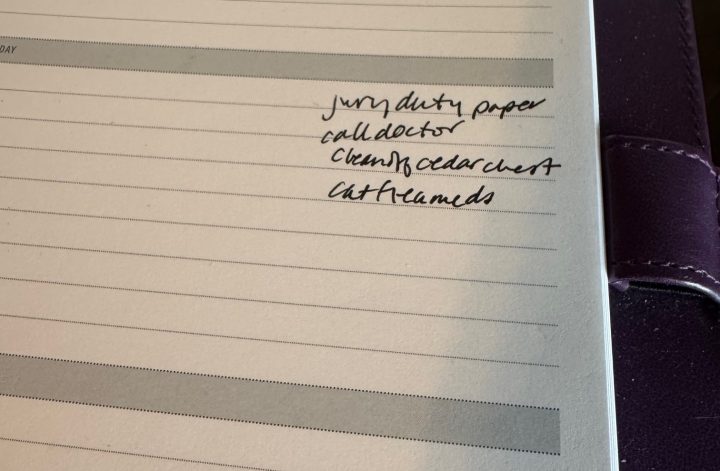 DAY
jury duty paper
call doctor
clean off cedar chest
cat flea meds